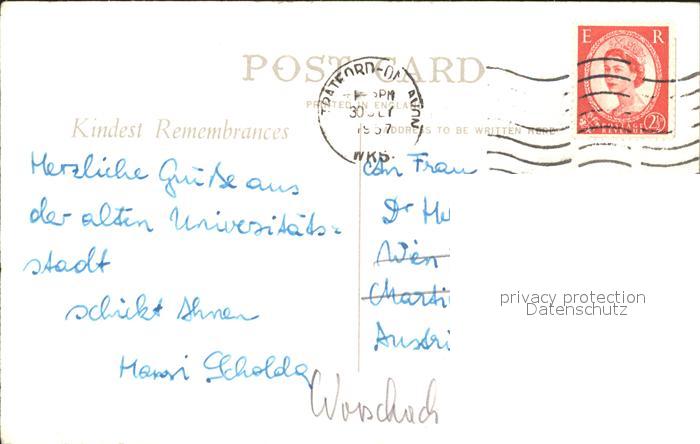 POST CARD
STRATFORD-ON-AVON
PM
30 JLY
1957
WKS.
E R
POSTAGE REVENUE
2½
PRINTED IN ENGLAND
ADDRESS TO BE WRITTEN HERE
Kindest Remembrances
Herzliche Grüße aus
der alten Universitäts=
stadt
schickt Ihnen
Hansi Scholda
An Frau
Dr
Wien
Marti
Austri
Worschach
privacy protection
Datenschutz